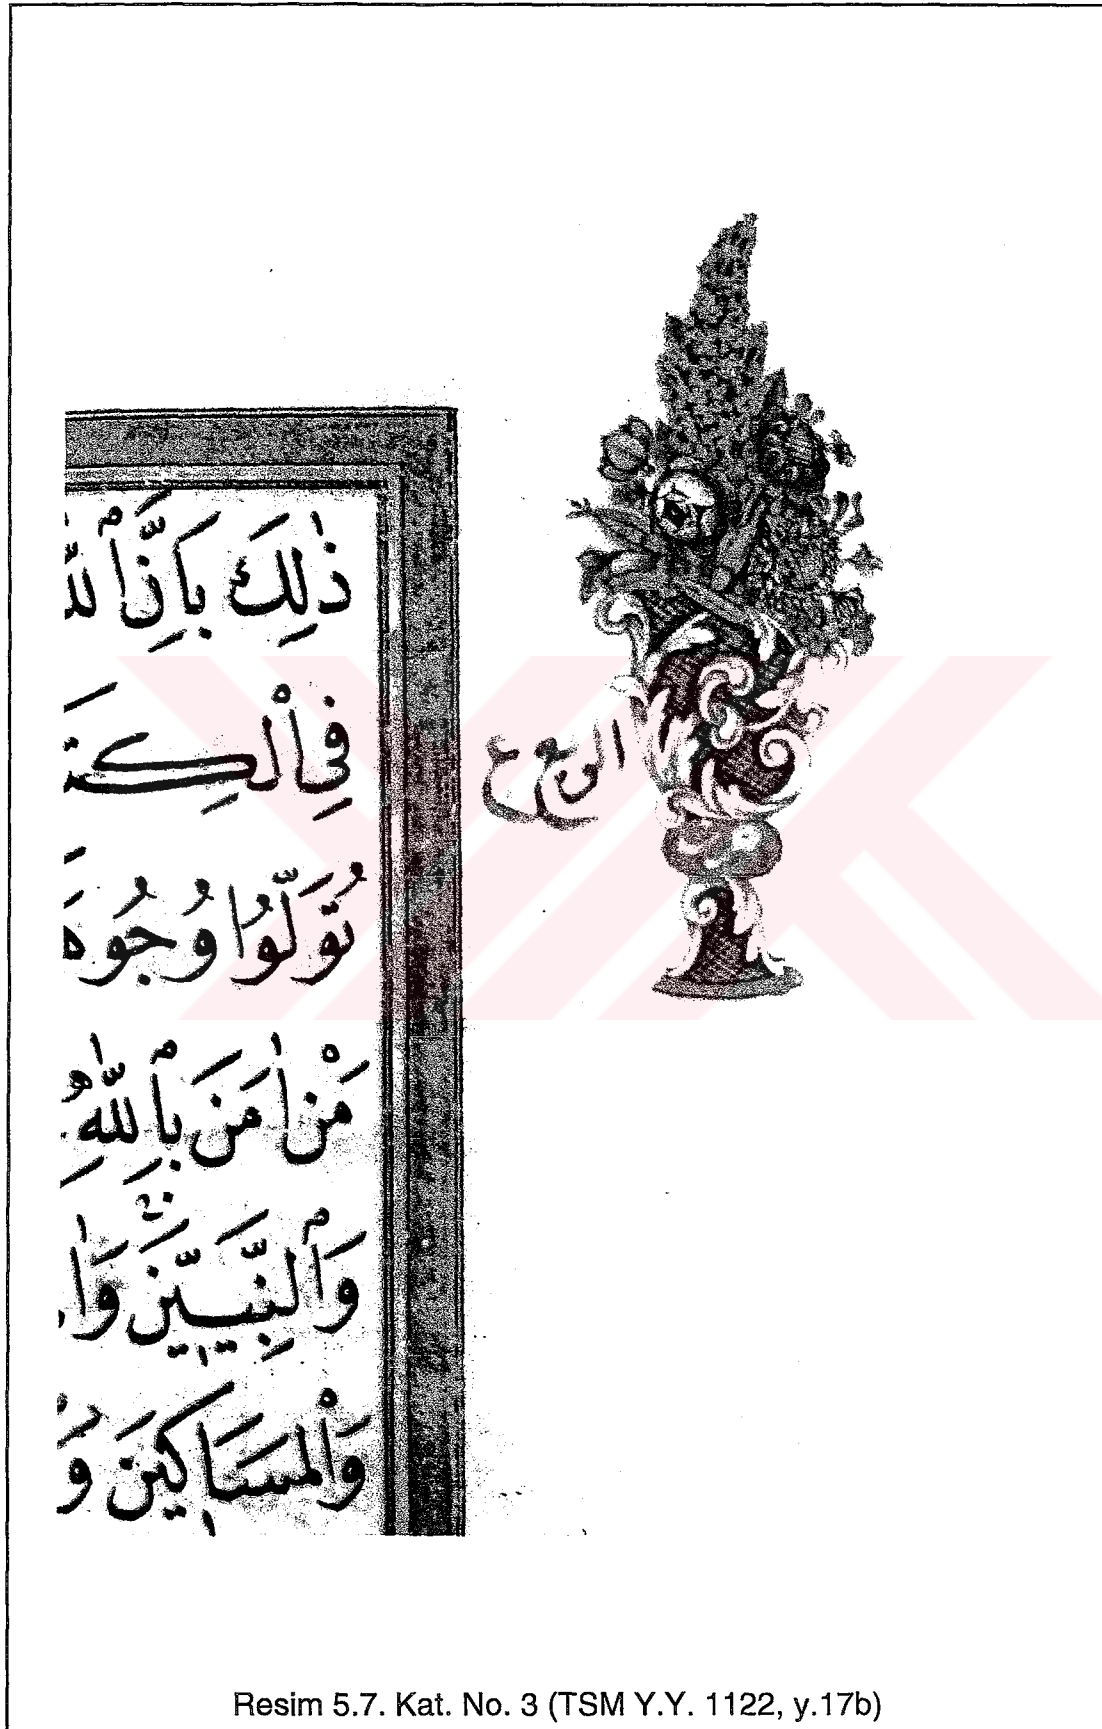 ذٰلِكَ بِاَنَّ ٱللّ
فِي ٱلْكِتَ
تُوَلُّوا وُجُوهَ
مَنْ اٰمَنَ بِٱللّٰهِ
وَٱلنَّبِيّٖنَ وَاٰ
وَٱلْمَسَاكِينَ وَ
Resim 5.7. Kat. No. 3 (TSM Y.Y. 1122, y.17b)